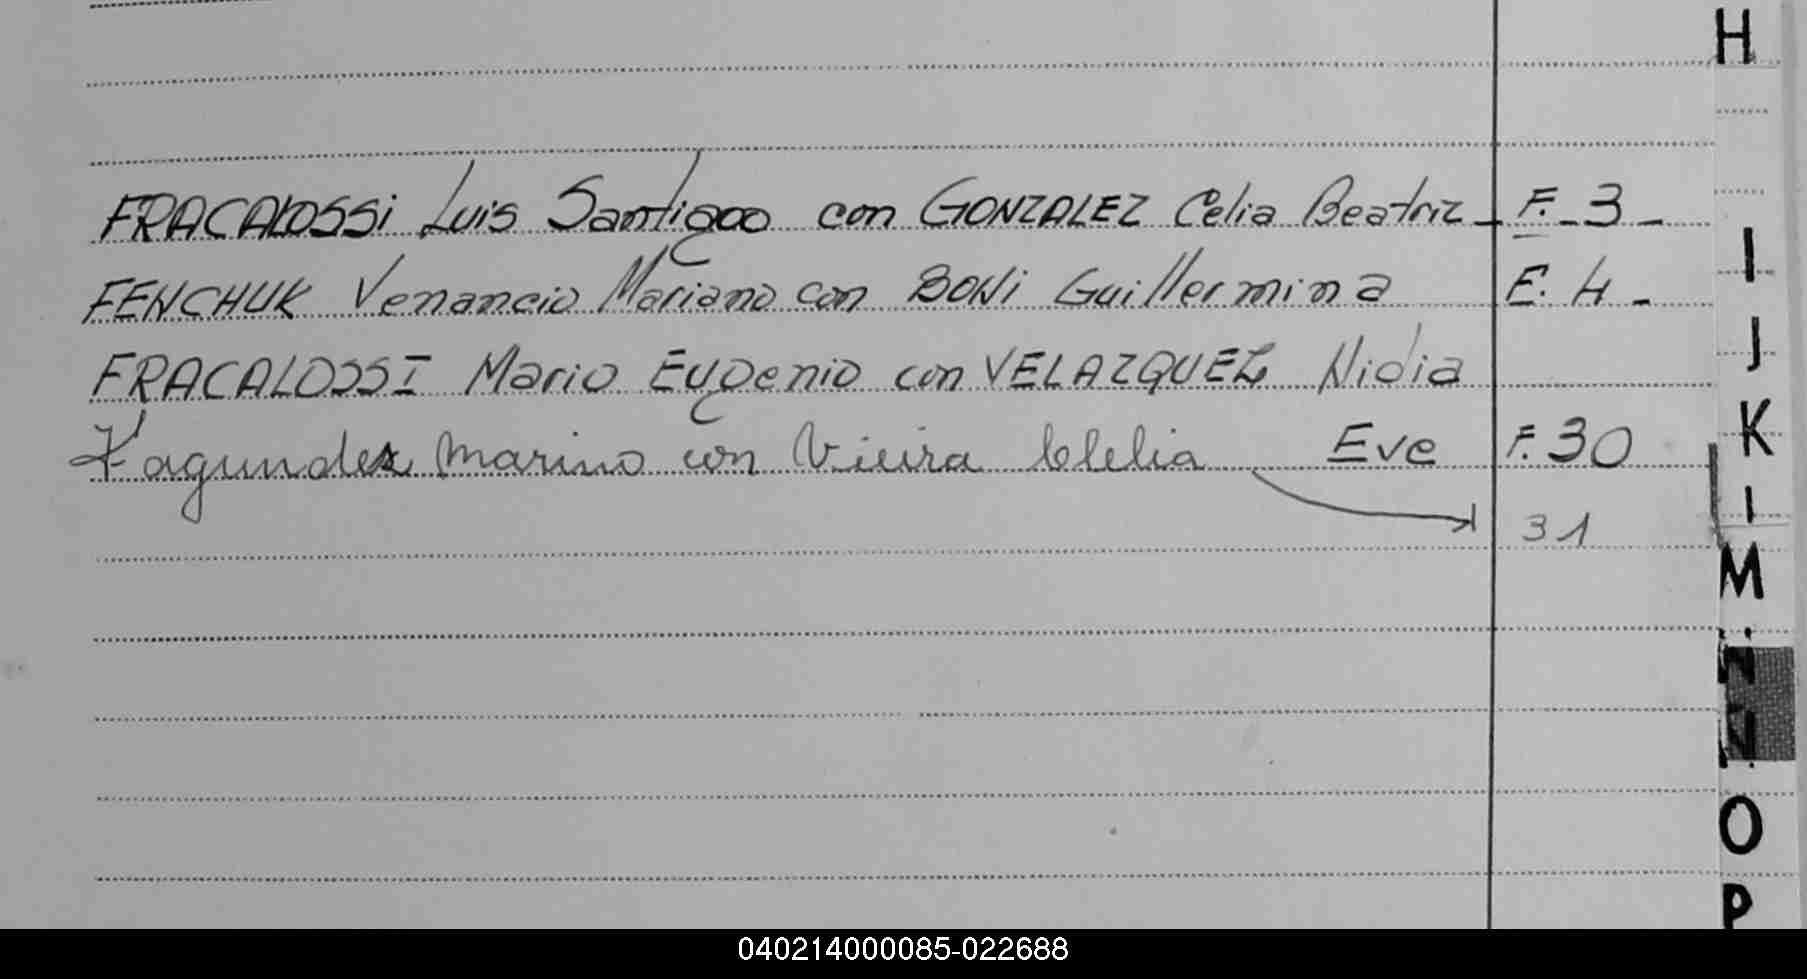 FRACALOSSI Luis Santiago con GONZALEZ Celia Beatriz - F. - 3 -
FENCHUK Venancio Mariano con BONI Guillermina F. 4 -
FRACALOSSI Mario Eugenio con VELAZQUEZ Nidia
Fagundes Marino con Vieira Clelia Eve F. 30
31
H
I
J
K
M
N
O
P
040214000085-022688